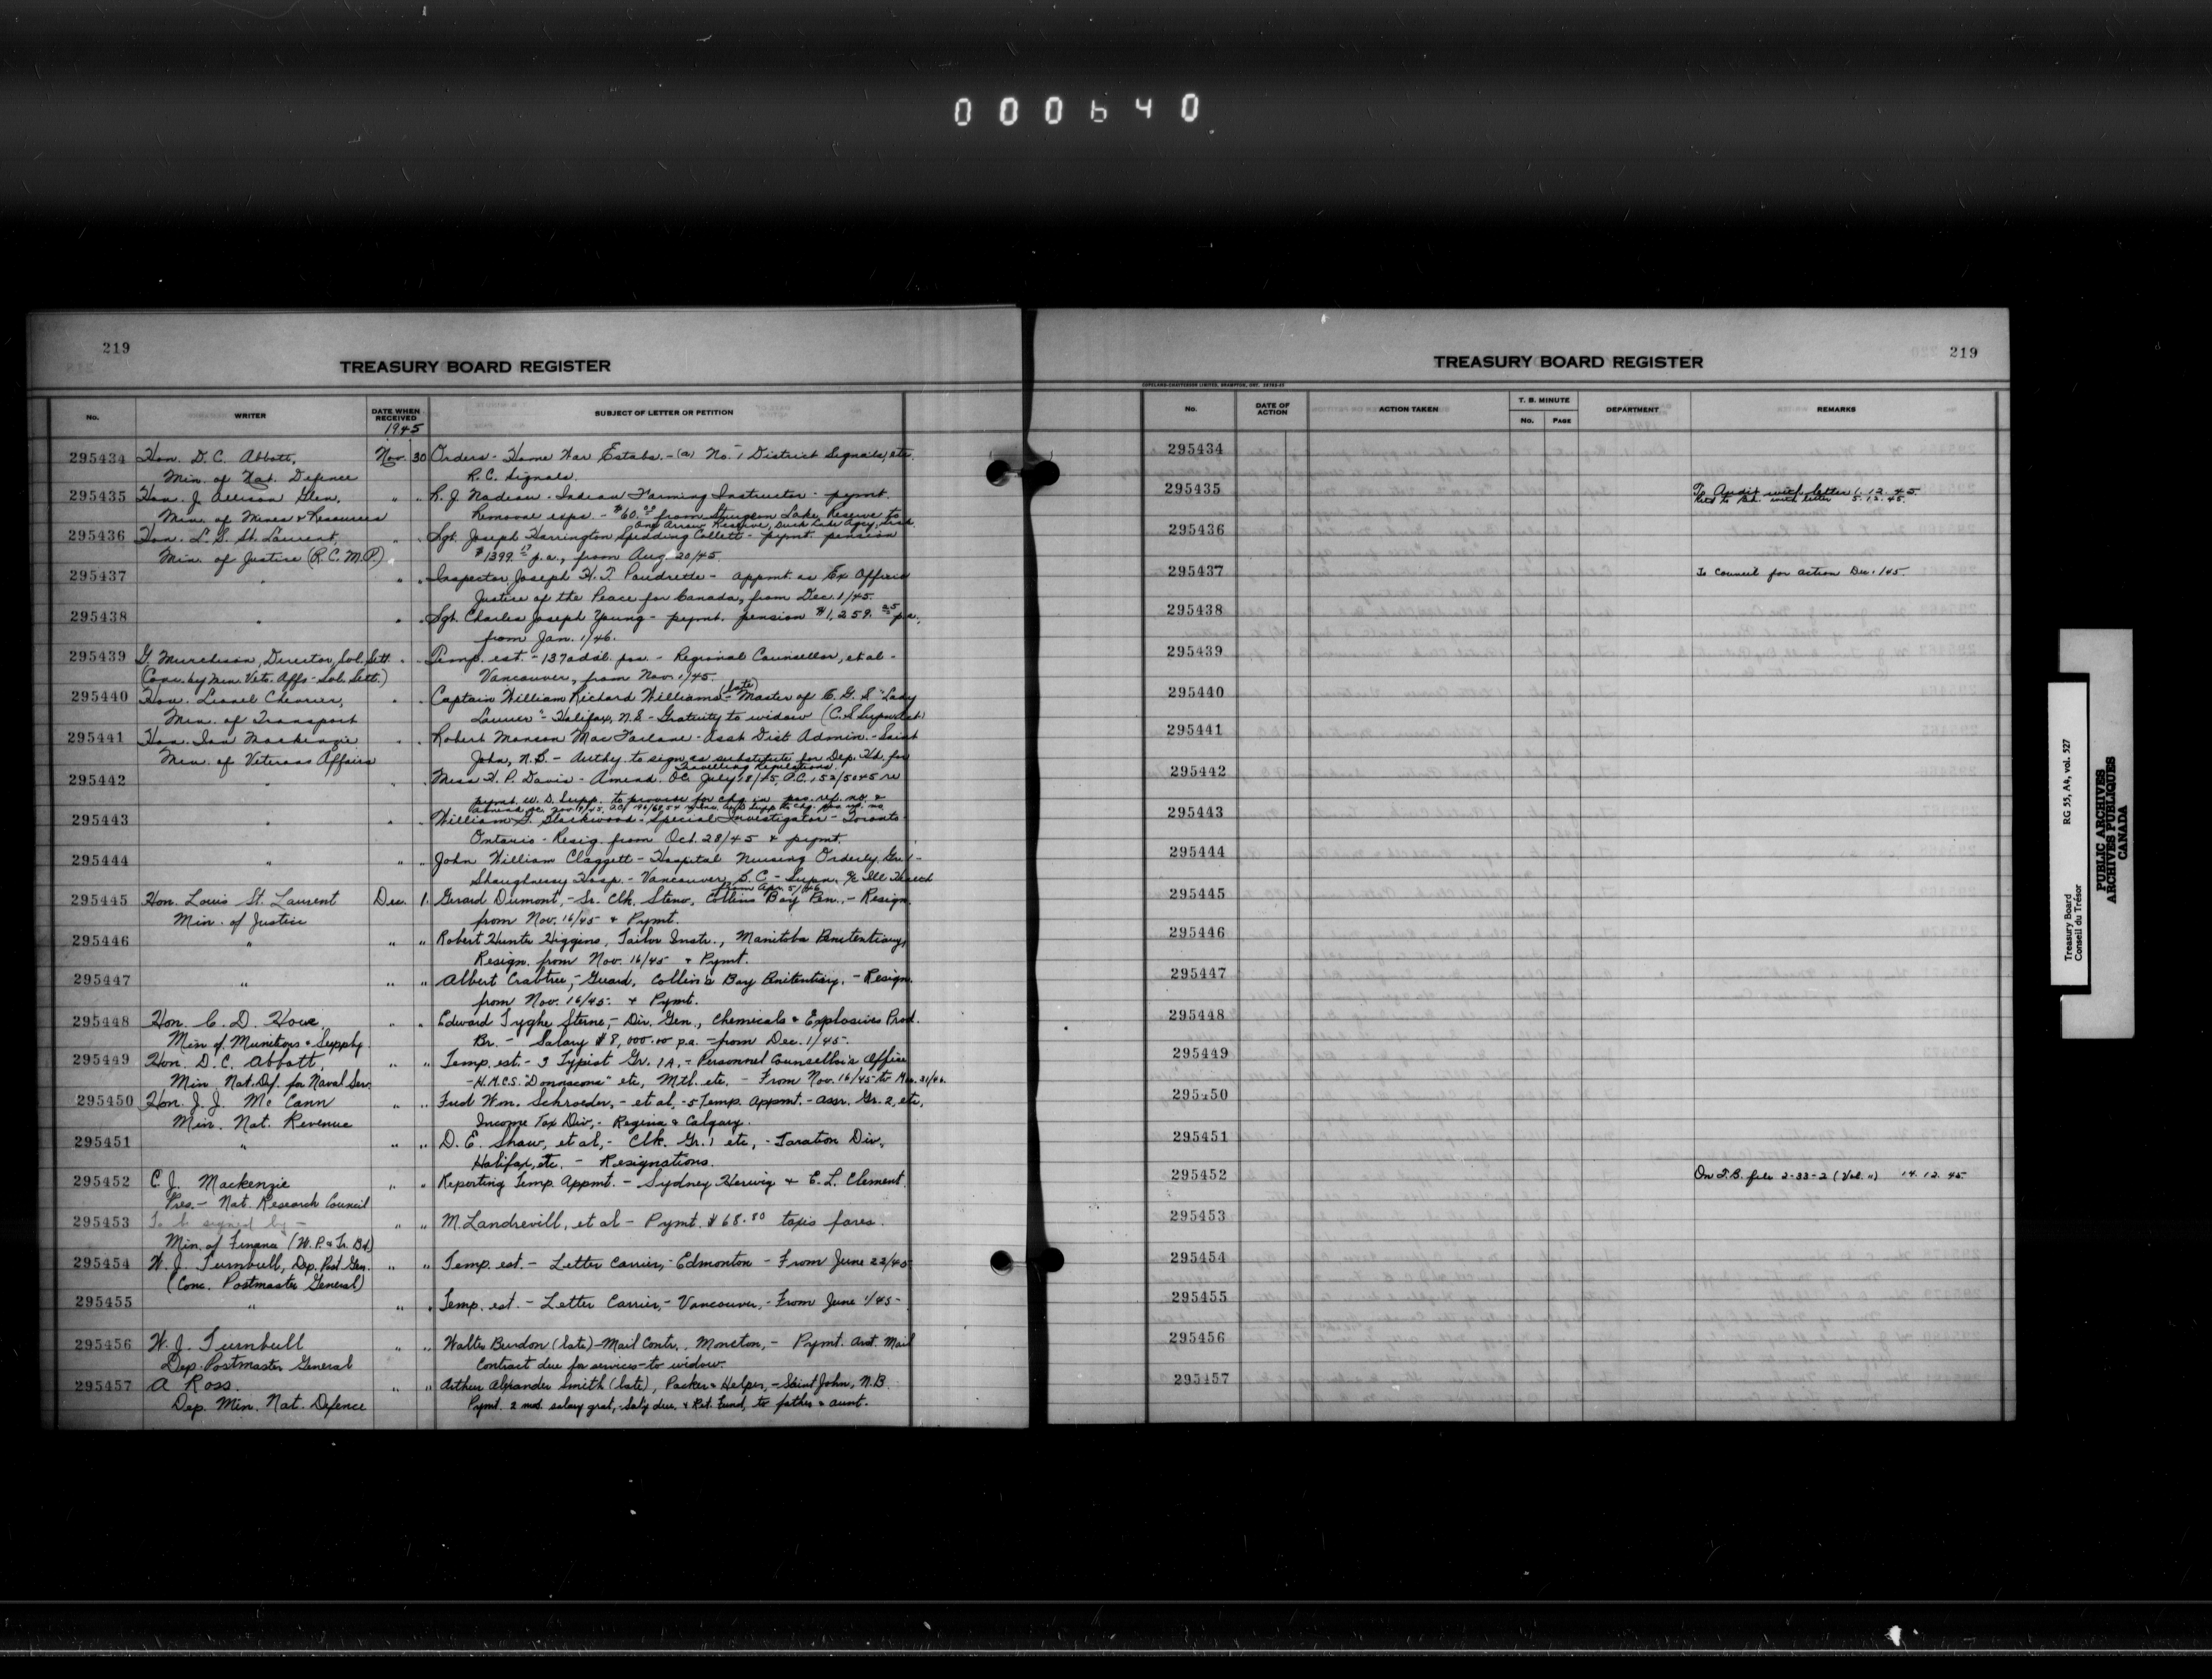 000640
219
TREASURY BOARD REGISTER
No. WRITER DATE WHEN RECEIVED SUBJECT OF LETTER OR PETITION
1945
295434 Hon. D. C. Abbott, Nov. 30 Orders - Home War Estabs. - (a) No. 1 District Signals, etc.
Min. of Nat. Defence R. C. Signals.
295435 Hon. J. Allison Glen, " " L. J. Nadeau - Indian Farming Instructor - pymt.
Min. of Mines & Resources Removal exps. - $60.00 from Sturgeon Lake Reserve to
One Arrow Reserve, Duck Lake Agcy, Sask.
295436 Hon. L. S. St. Laurent, " " Sgt. Joseph Harrington Spedding Collett - pymt. pension
Min. of Justice (R.C.M.P.) $1399.17 p.a., from Aug. 20/45.
295437 " " " Inspector Joseph H. T. Poudrette - appmt. as Ex Officio
Justice of the Peace for Canada, from Dec. 1/45.
295438 " " " Sgt. Charles Joseph Young - pymt. pension $1,259.25 p.a.,
from Jan. 1/46.
295439 G. Murchison, Director, Sol. Sett. " " Temp. est. - 137 addl. pos. - Regional Counsellor, et al -
(Conc. by Min. Vets. Affs - Sol. Sett.) Vancouver, from Nov. 1/45.
295440 Hon. Lionel Chevrier, " " Captain William Richard Williams (late) - Master of C. G. S "Lady
Min. of Transport Laurier" - Halifax, N.S - Gratuity to widow (C.S Supn Act)
295441 Hon. Ian Mackenzie " " Robert Monson MacFarlane - Asst Dist. Admin. - Saint
Min. of Veterans Affairs John, N.B. - Authy. to sign as substitute for Dep. Hd. for
Travelling Regulations.
295442 " " " Miss H. P. Davis - Amend. OC. July 18/45, P.C. 152/5045 re
pymt. W. D. Supp. to provide for chg. in pos. ref. no. &
295443 " " " William G. Blackwood - Special Investigator - Toronto
Ontario - Resig. from Oct. 28/45 & pymt.
295444 " " " John William Claggett - Hospital Nursing Orderly Gr. 1 -
Shaughnessy Hosp. - Vancouver, B.C. - Supn. a/c Ill Health
from Apr. 5/46
295445 Hon. Louis St. Laurent Dec. 1. Gerard Dumont, - Sr. Clk. Steno, Collins Bay Pen., - Resign.
Min. of Justice from Nov. 16/45 & Pymt.
295446 " " " Robert Hunter Higgins, Tailor Instr., Manitoba Penitentiary,
Resign. from Nov. 16/45 & Pymt.
295447 " " " Albert Crabtree, - Guard, Collin's Bay Penitentiary. - Resign.
from Nov. 16/45. & Pymt.
295448 Hon. C. D. Howe " " Edward Tyghe Sterne, - Dir. Gen., Chemicals & Explosives Prod.
Min of. Munitions & Supply Br. - Salary $8,000.00 p.a. - from Dec. 1/45.
295449 Hon. D. C. Abbott, " " Temp. est. - 3 Typist Gr. 1A, - Personnel Counsellor's Office
Min. Nat. Def. for Naval Serv. - H.M.C.S. "Donnacona" etc, Mtl. etc. - From Nov. 16/45 to Mar. 31/46.
295450 Hon. J. J. McCann " " Fred Wm. Schroeder, - et al, - 5 Temp. Appmt. - Assr. Gr. 2, etc,
Min. Nat. Revenue Income Tax Div, - Regina & Calgary.
295451 " " " D. E. Shaw, et al, - Clk. Gr. 1 etc, - Taxation Div,
Halifax, etc. - Resignations.
295452 C. J. Mackenzie " " Reporting Temp. Appmt. - Sydney Herwig & E. L. Clement.
Pres. - Nat. Research Council
295453 To be signed by - " " M. Landrevill, et al - Pymt. $68.80 taxis fares.
Min. of Finance (W. P. & Tr. Bd.)
295454 W. J. Turnbull, Dep. Post. Gen. " " Temp. est. - Letter Carrier, - Edmonton - From June 22/45
(Conc. Postmaster General)
295455 " " " Temp. est. - Letter Carrier, - Vancouver, - From June 1/45 -
295456 W. J. Turnbull " " Walter Burdon (late) - Mail Contr., Moncton, - Pymt. Amt. Mail
Dep. Postmaster General Contract due for services - to widow.
295457 A Ross. " " Arthur Alexander Smith (late), Packer & Helper, - Saint John, N.B.
Dep. Min. Nat. Defence Pymt. 2 mos. salary grat, - Saly due, & Ret. Fund, to father & aunt.
219
TREASURY BOARD REGISTER
COPELAND-CHATTERSON LIMITED, BRAMPTON, ONT.
No. DATE OF ACTION ACTION TAKEN T. B. MINUTE No. PAGE DEPARTMENT REMARKS
295434
295435 To Audit with letter 1.12.45.
Retd to Bd. with letter 5.12.45.
295436
295437 To Council for action Dec. 1/45.
295438
295439
295440
295441
295442
295443
295444
295445
295446
295447
295448
295449
295450
295451
295452 On T.B. file 2-33-2 (Vol. ") 14.12.45.
295453
295454
295455
295456
295457
Treasury Board RG 55, A4, vol. 527
Conseil du Trésor
PUBLIC ARCHIVES
ARCHIVES PUBLIQUES
CANADA